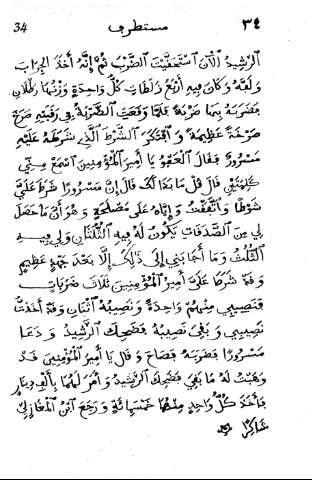 34 مستطرف ٣٤
الرَّشِيدُ الْآنَ اسْتَحْقَيْتَ الضَّرْبَ ثُمَّ إِنَّهُ أَخَذَ الْجِرَابَ
وَلَفَّهُ وَكَانَ فِيهِ أَرْبَعُ زَلَطَاتٍ كُلُّ وَاحِدَةٍ وَزْنُهَا رَطْلَانِ
فَضَرَبَهُ بِهَا ضَرْبَةً فَلَمَّا وَقَعَتِ الضَّرْبَةُ فِي رَقَبَتِهِ صَرَخَ
صَرْخَةً عَظِيمَةً وَافْتَكَرَ الشَّرْطَ الَّذِي شَرَطَهُ عَلَيْهِ
مَسْرُورٌ فَقَالَ الْعَفْوَ يَا أَمِيرَ الْمُؤْمِنِينَ اسْمَعْ مِنِّي
كَلِمَتَيْنِ قَالَ قُلْ مَا بَدَا لَكَ قَالَ إِنَّ مَسْرُورًا شَرَطَ عَلَيَّ
شَرْطًا وَاتَّفَقْتُ وَإِيَّاهُ عَلَى مَصْلَحَةٍ وَهُوَ أَنَّ مَا حَصَلَ
لِي مِنَ الصَّدَقَاتِ يَكُونُ لَهُ فِيهِ الثُّلُثَانِ وَلِي فِيهِ
الثُّلُثُ وَمَا أَجَابَنِي إِلَى ذَلِكَ إِلَّا بَعْدَ جَهْدٍ عَظِيمٍ
وَقَدْ شَرَطَ عَلَيَّ أَمِيرُ الْمُؤْمِنِينَ ثَلَاثَ ضَرَبَاتٍ
فَنَصِيبِي مِنْهُمْ وَاحِدَةٌ وَنَصِيبُهُ اثْنَانِ وَقَدْ أَخَذْتُ
نَصِيبِي وَبَقِيَ نَصِيبُهُ فَضَحِكَ الرَّشِيدُ وَدَعَا
مَسْرُورًا فَضَرَبَهُ فَصَاحَ وَقَالَ يَا أَمِيرَ الْمُؤْمِنِينَ قَدْ
وَهَبْتُ لَهُ مَا بَقِيَ فَضَحِكَ الرَّشِيدُ وَأَمَرَ لَهُمَا بِأَلْفِ دِينَارٍ
فَأَخَذَ كُلُّ وَاحِدٍ مِنْهُمَا خَمْسَمِائَةٍ وَرَجَعَ ابْنُ الْمَغَازِلِيِّ
شَاكِرًا